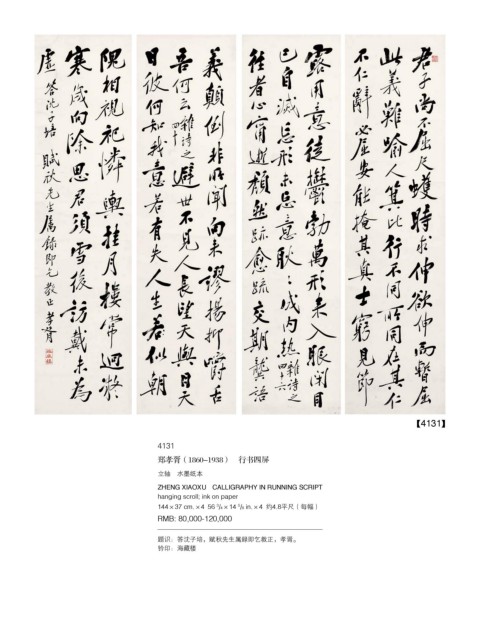 君子尚不屈尺蠖時求伸欲伸而暫屈
此義難喻人箕比行不同所同在其仁
不仁辭必屈安能掩其真士窮見節
露用意徒鬱勃萬形未入眼閉目
已自滅忘形未忘意耿耿成內熱雜詩之
往者心頹然疏愈疏交期龔語
義顛倒非所聞向來謬揚抑嚼舌
吾何云雜詩之避世不見人長望天與日天
日彼何知我意若有失人生若似朝
隗相視憐挂月樓常迥凝
寒歲向除思君須雪後訪戴未為
虛 答沈子培 賦秋先生属錄即乞敎正 孝胥
【4131】
4131
郑孝胥(1860–1938) 行书四屏
立轴 水墨纸本
ZHENG XIAOXU CALLIGRAPHY IN RUNNING SCRIPT
hanging scroll; ink on paper
144×37 cm.×4 56 5/8×14 5/8 in.×4 约4.8平尺(每幅)
RMB: 80,000-120,000
题识:答沈子培。赋秋先生属録即乞教正,孝胥。
钤印:海藏楼